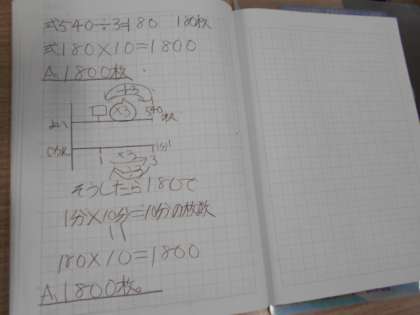 式540÷3=180 180枚
式180×10=1800
A.1800枚
÷3
×3
540
枚
0
1
3
×3
÷3
そうしたら180で
1分×10分=10分の枚数
180×10=1800
A.1800枚。